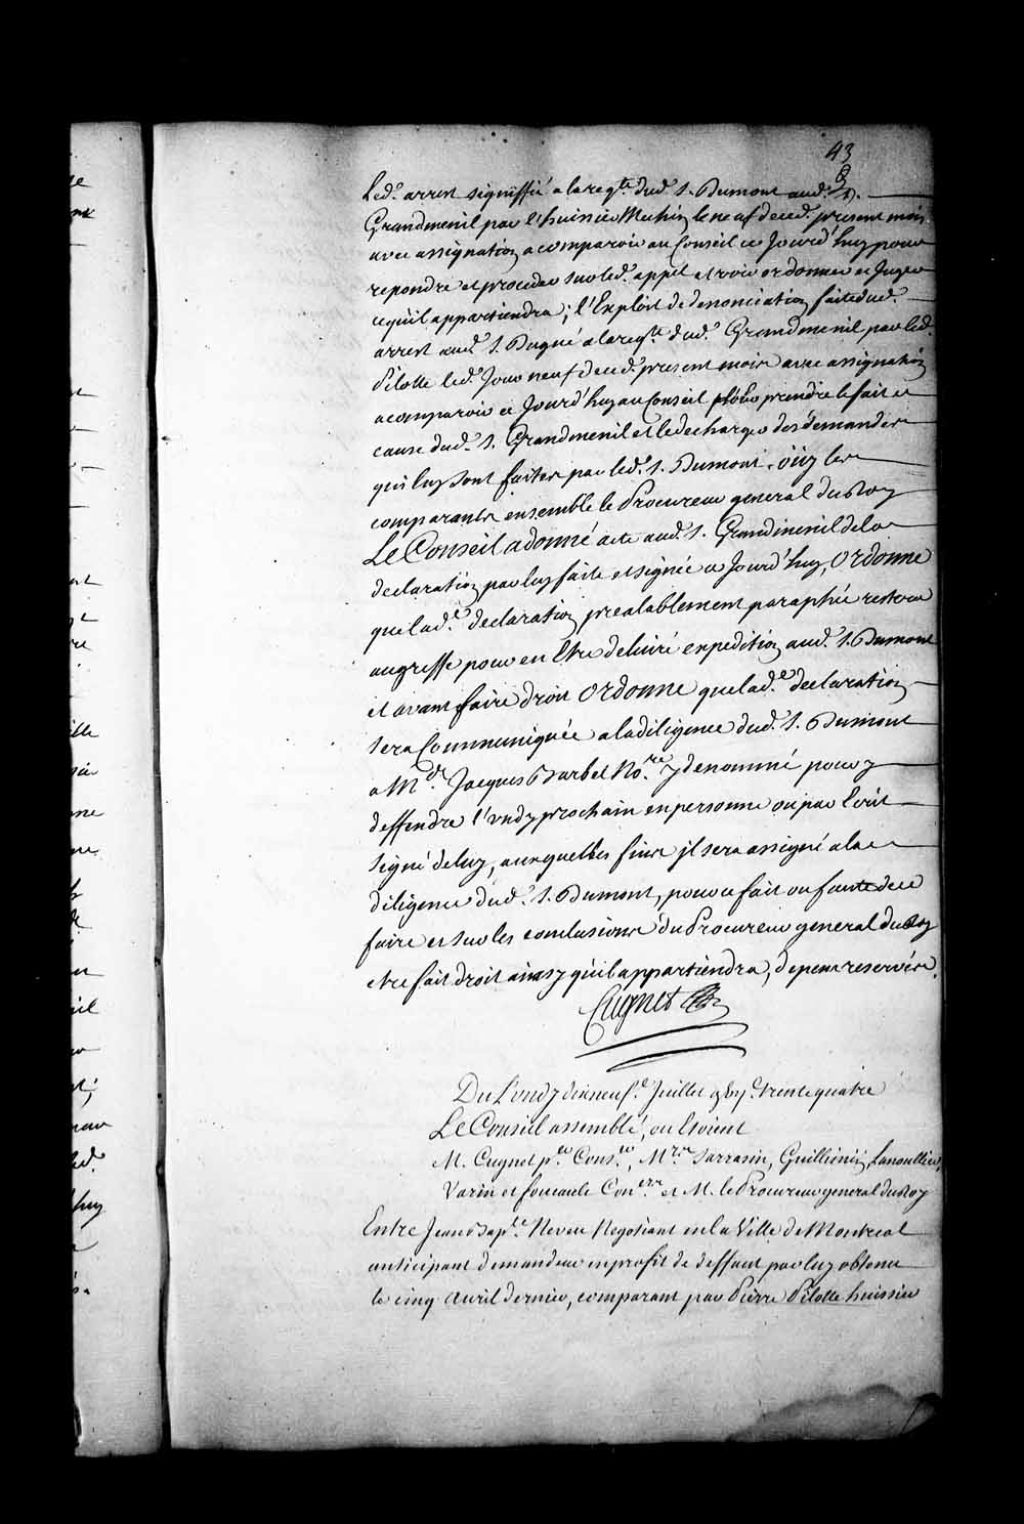 43
Led.t arrest signiffié a la reqte. dud. S. Dumont aud. S.
Grandmenil par l'huissier le neuf de ced. present mois
avec assignation a comparoir au Conseil ce Jourd'huy pour
repondre et proceder sur led. appel et voir ordonner et Juger
ce quil appartiendra; l'Exploit de denonciation faite dud.
arrest aud. S. Dugué a la reqte. dud. Grandmenil par led.
Pilotte led. Jour neuf de ced. present mois avec assignation
a comparoir ce Jourd'huy au Conseil prendre le fait et
cause dud. S. Grandmenil et le decharger des demandes
qui luy sont faites par led. S. Dumont. oüy les
comparants ensemble le Procureur general du Roy
Le Conseil a donné acte aud. S. Grandmenil de la
declaration par luy faite et signée ce Jourd'huy, Ordonne
que lad.e declaration prealablement paraphée restera
au greffe pour en Etre deliuré expedition aud. S. Dumont
et avant faire droit Ordonne que lad.e declaration
sera Communiquée a la diligence dud. S. Dumont
a M.e Jacques Barbel No.re y denommé pour y
deffendre l'undy prochain en personne ou par Ecrit
signé de luy, auxquelles fins jl sera assigné a la
diligence dud. S. Dumont, pour ce fait ou faute de ce
faire et sur les conclusions du Procureur general du Roy
etre fait droit ainsy quil appartiendra, depens reservés.
Cugnet
Du Lundy dixneuf.e Juillet gbyc. trente quatre
Le Conseil assemblé, ou Etoient
M. Cugnet p.er Cons.er, M.rs Sarrasin, Guillimin, Lanoullier,
Varin et foucault Con.ers et M. le Procureur general du Roy
Entre Jean Bap.te Neveu Negotiant en la Ville de Montreal
anticipant demandeur en profit de deffaut par luy obtenu
le cinq avril dernier, comparant par Pierre Pilotte huissier